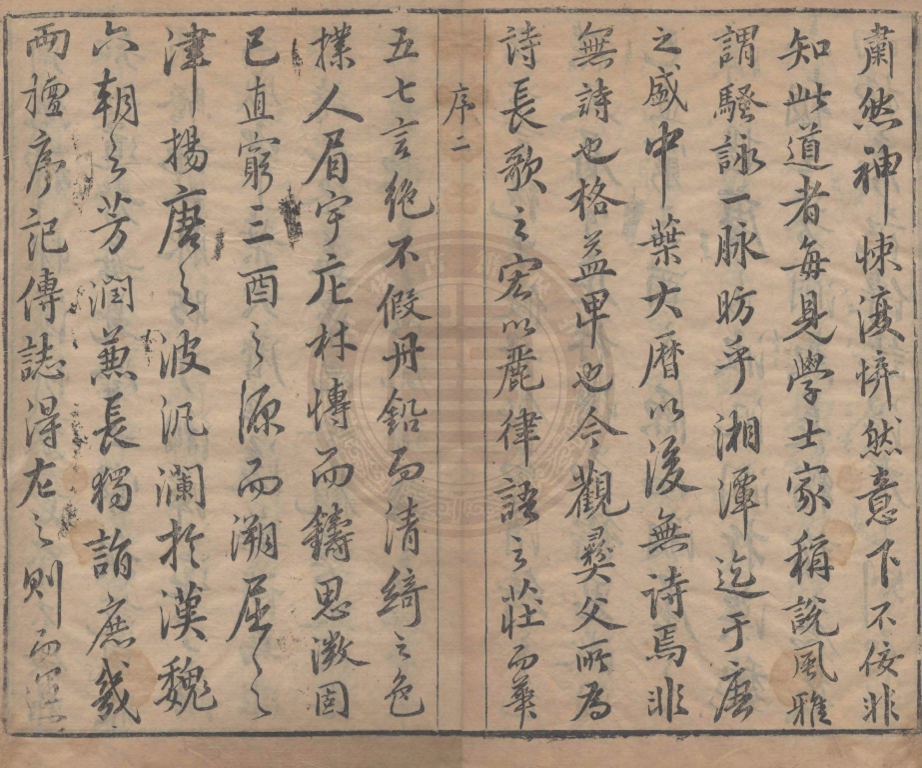 肅然神悚渡悰然意下不佞非
知此道者每見學士家稱說風雅
謂騷詠一脉昉乎湘潭迄于唐
之盛中葉大曆以後無詩焉非
無詩也格益卑也今觀彛父所為
詩長歌之宏以麗律語之莊而華
序二
五七言絶不假丹鉛而清綺之色
撲人眉宇庀材慱而鑄思激固
已直窮三酉之源而溯屈之
津揚唐之波汎瀾於漢魏
六朝之芳潤兼長獨詣庶幾
兩擅序記傳誌得左之則而運